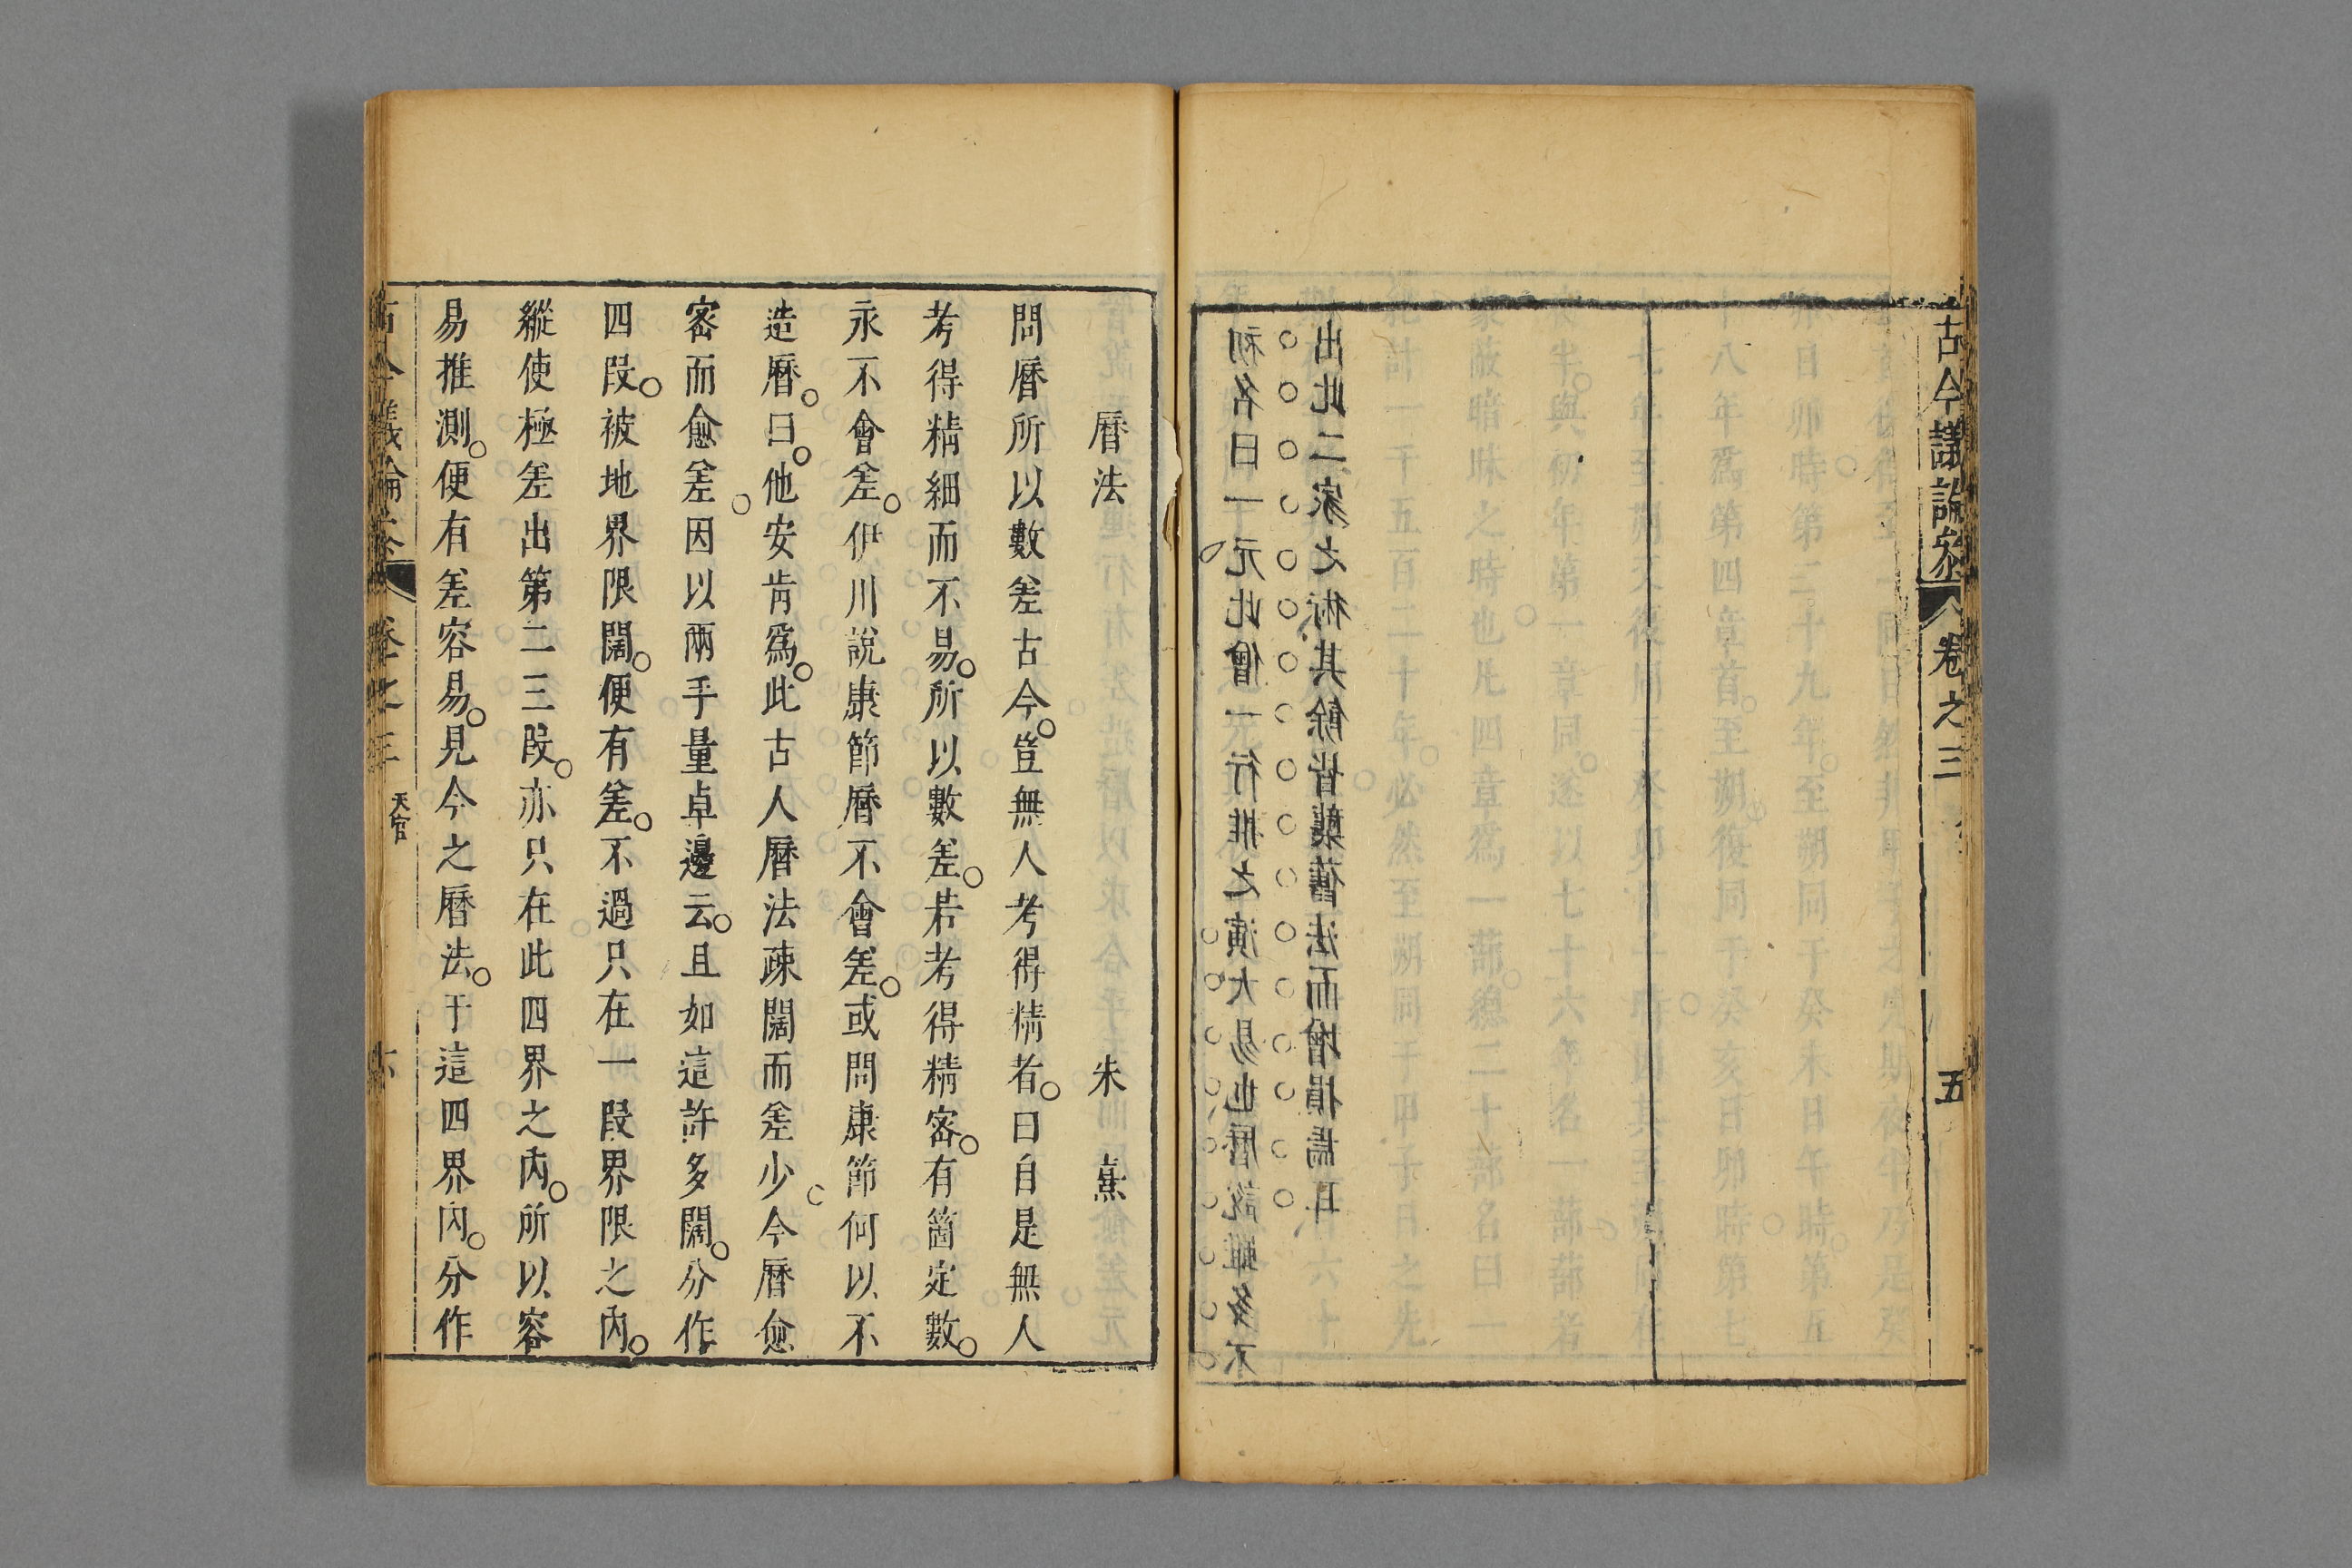 古今議論參 卷之三 五
初名曰一元此僧一行推之演大易也曆説雖多不
出此二家之術其餘皆襲舊法而增損焉耳
曆法 朱熹
問曆所以數差古今。豈無人考得精者。曰自是無人
考得精細而不易。所以數差。若考得精密。有箇定數。
永不會差。伊川說康節曆不會差。或問康節何以不
造曆。曰。他安肯爲。此古人曆法疎闊而差少。今曆愈
密而愈差。因以兩手量卓邊云。且如這許多闊。分作
四段。被地界限闊。便有差。不過只在一段界限之內。
縱使極差出第二三段。亦只在此四界之內。所以容
易推測。便有差容易。見今之曆法。于這四界內。分作
古今議論參 卷之三 天官 六